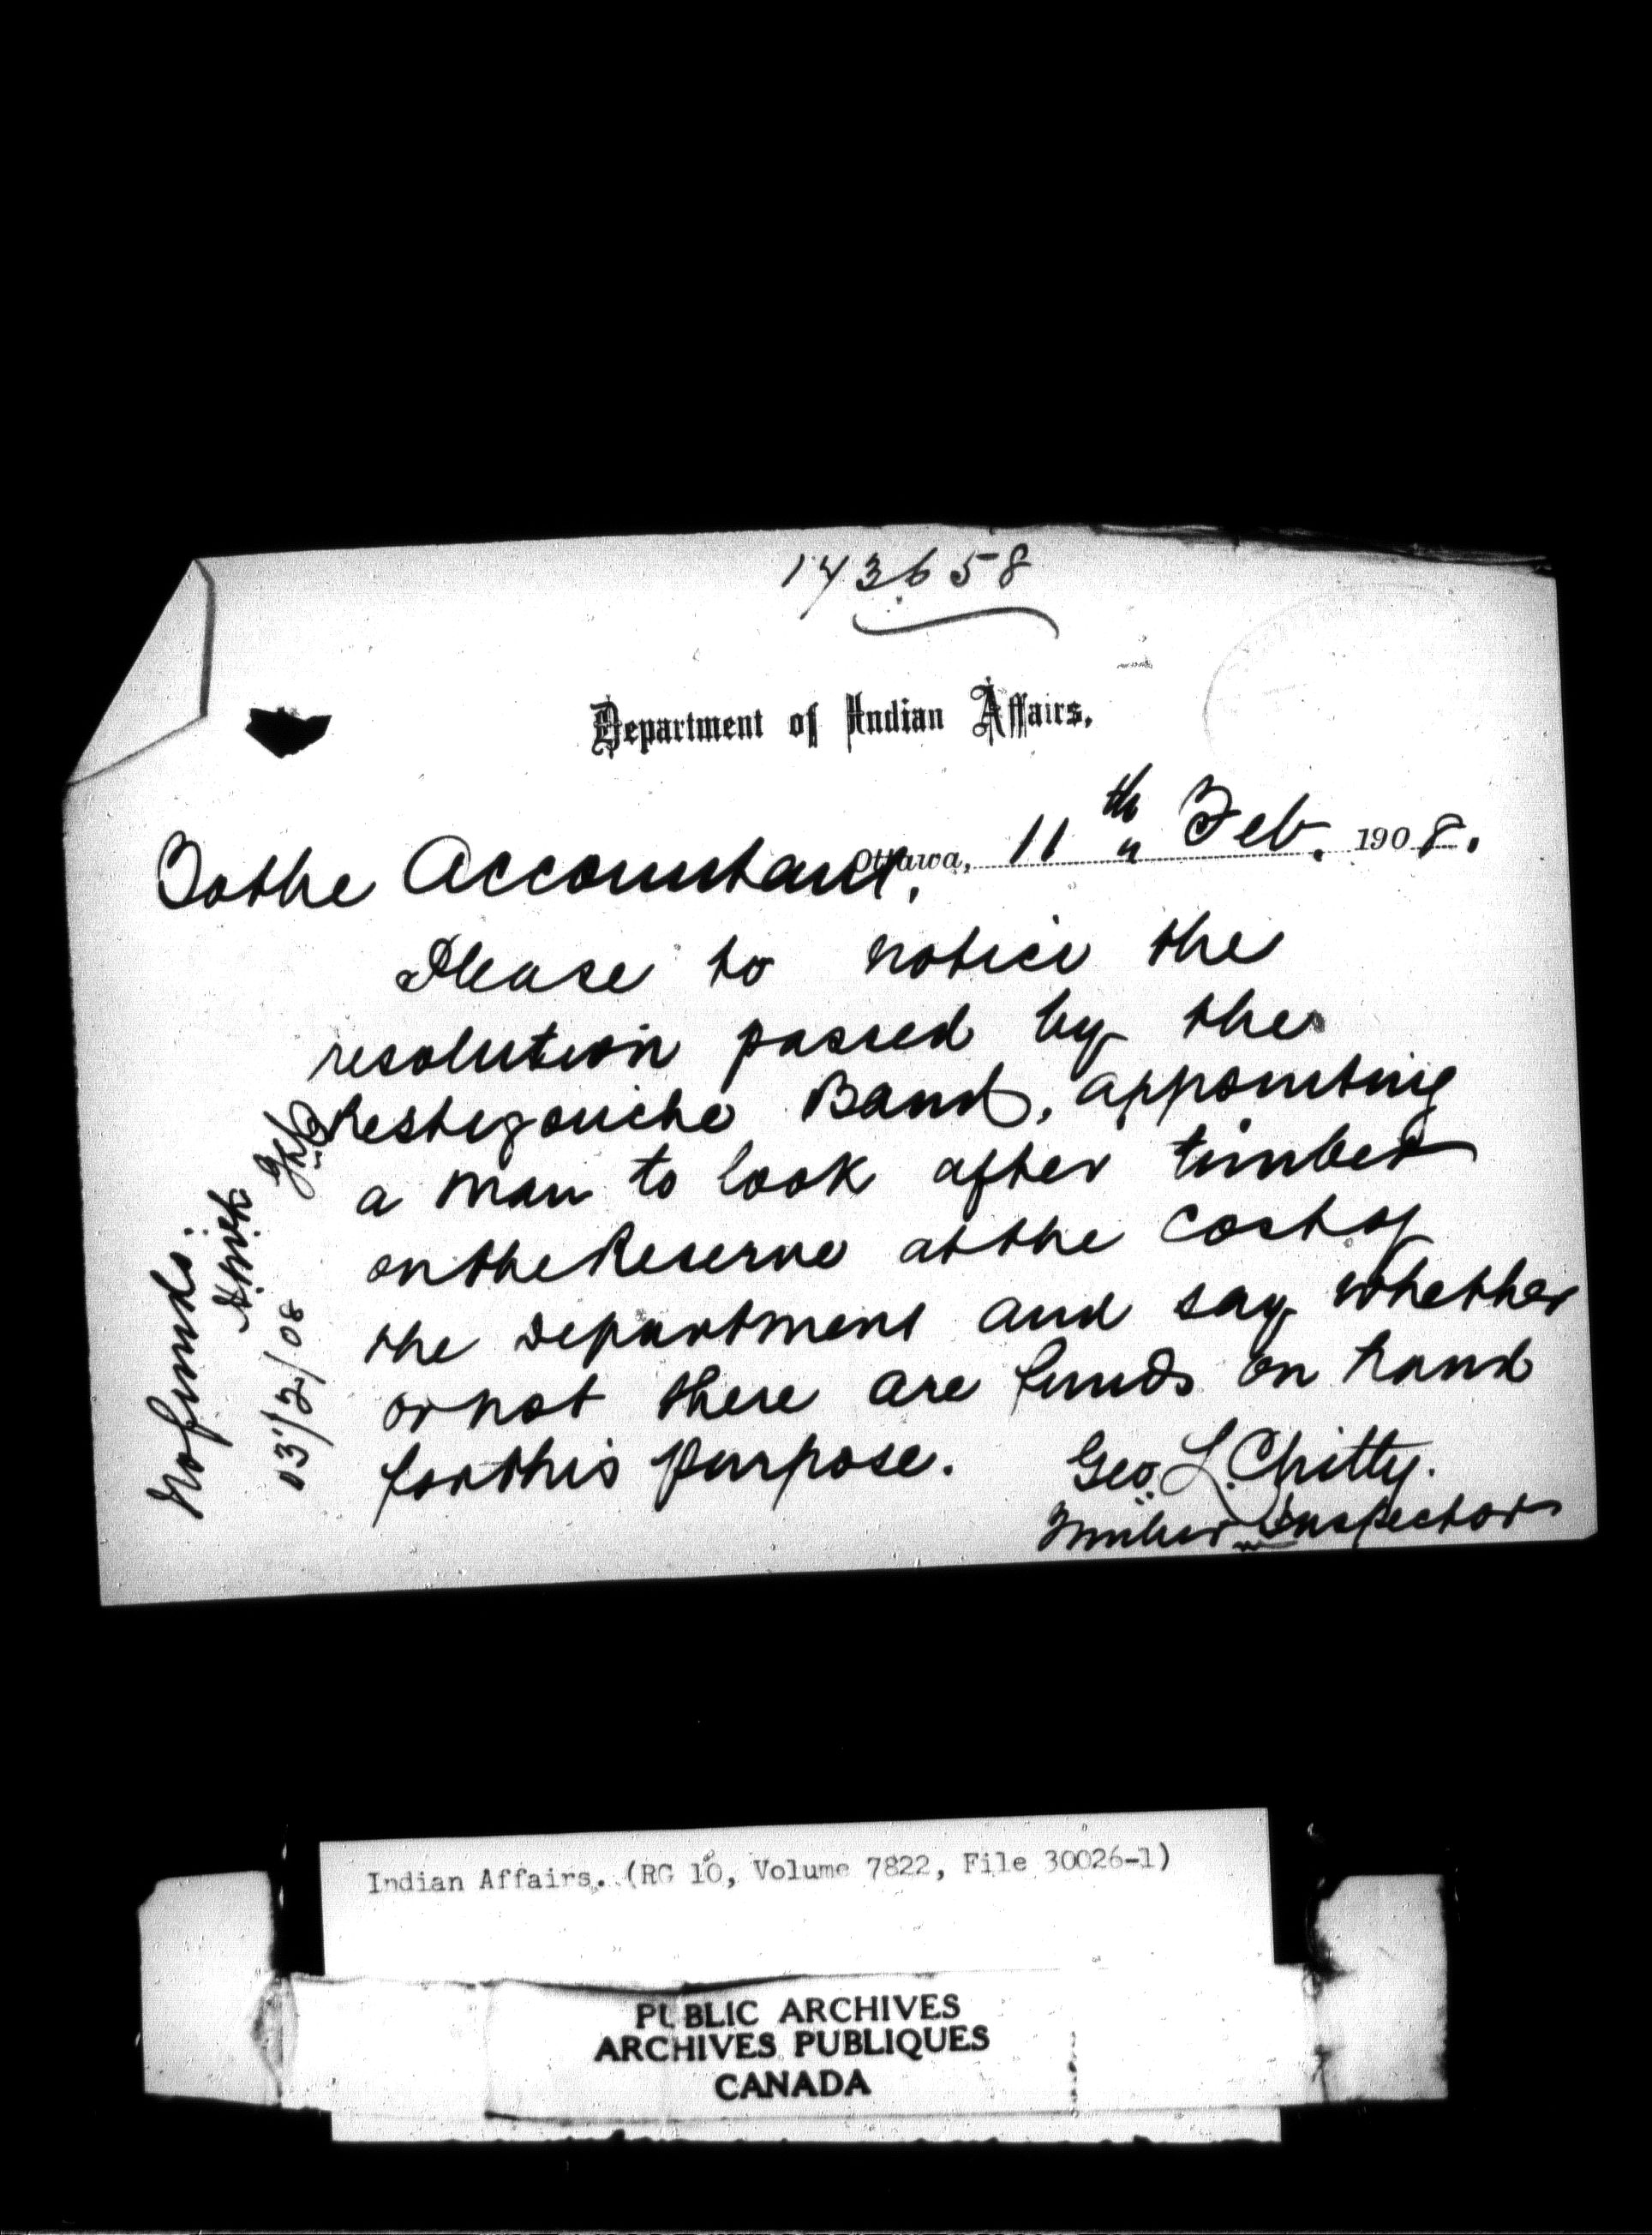 143658
Department of Indian Affairs,
Ottawa, 11th Feb. 1908.
To the Accountant,
Please to notice the
resolution passed by the
Restigouche Band, appointing
a man to look after timber
on the Reserve at the cost of
the Department and say whether
or not there are funds on hand
for this purpose.
Geo. L. Chitty.
Timber Inspector
No funds.
/2/08
Indian Affairs. (RG 10, Volume 7822, File 30026-1)
PUBLIC ARCHIVES
ARCHIVES PUBLIQUES
CANADA